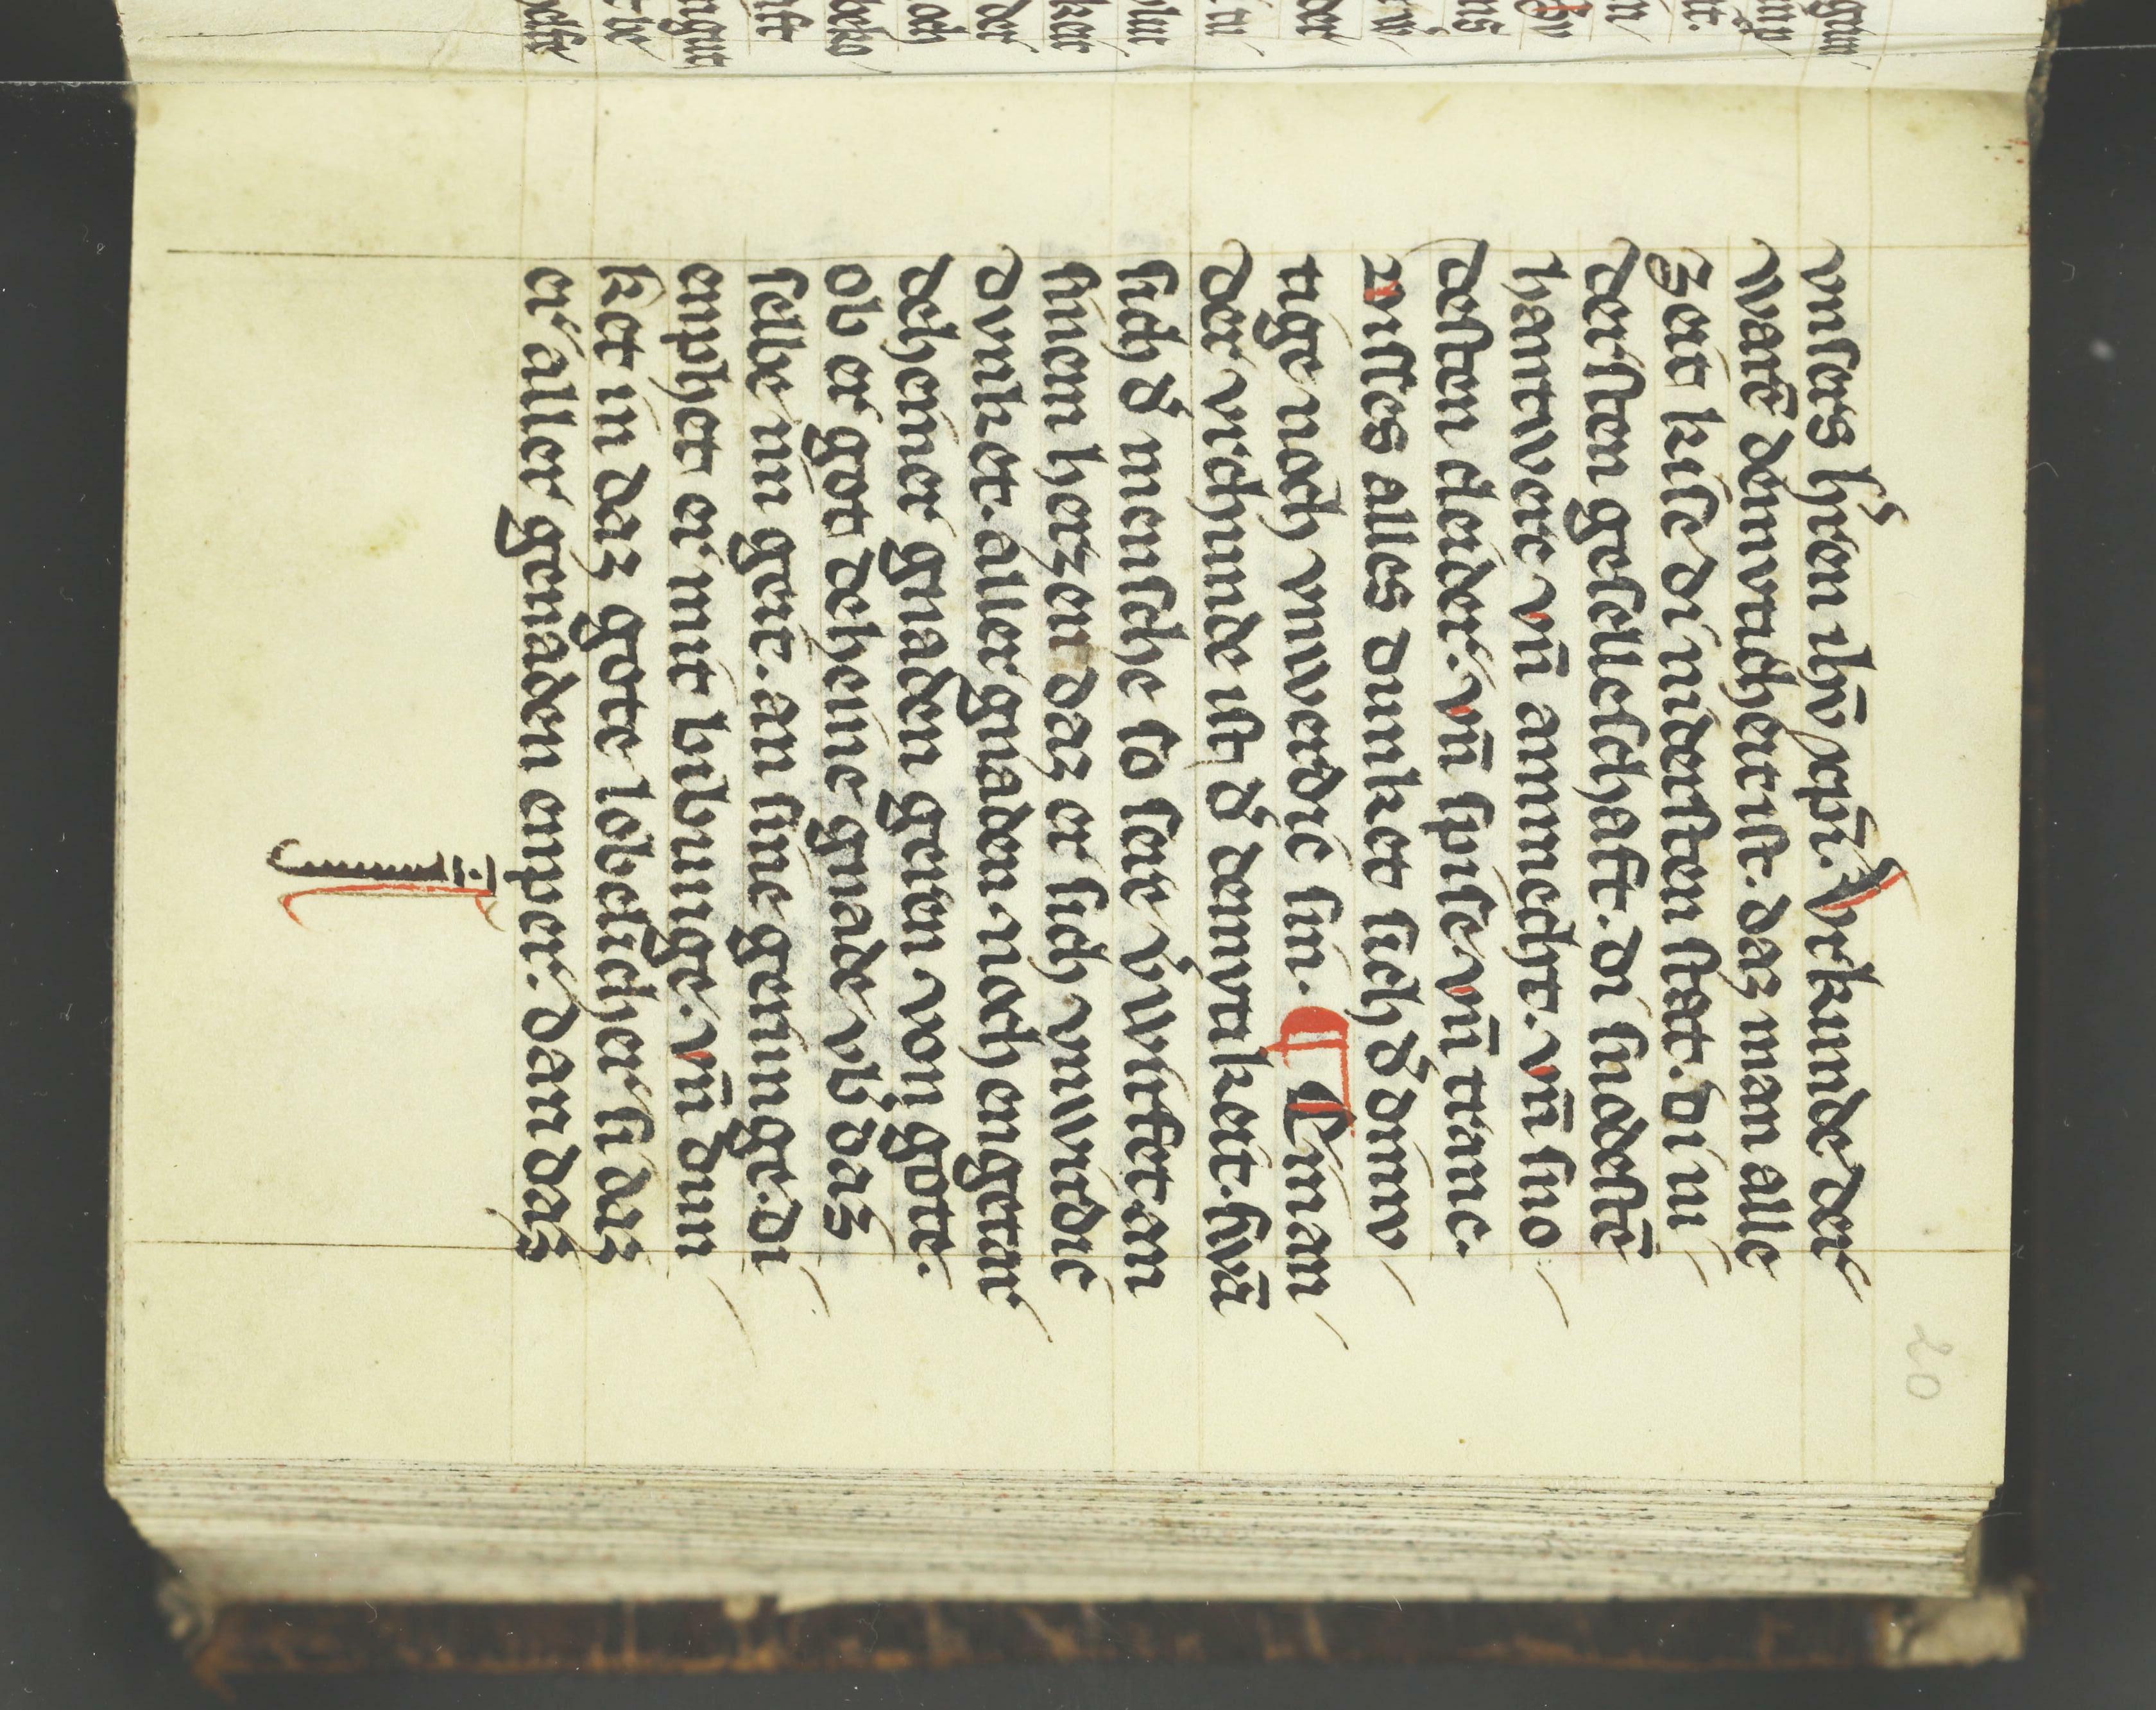 vnsers h̾ren ih̄v xp̄i. Vrkunde der
waren̄ demvtcheit ist. daz man alle
zeit kise di nidersten stat. di ni
dersten geselleschaft. di snodestē
hantwerc vn̄ ammecht. vn̄ sno
desten cleider. vn̄ spise. vn̄ tranc.
vn̄ des alles dunket sich d̾ dimv
tige noch vnwerdic sin. ¶ Ein an
der vrchunde ist d̾ demvtikeit. swā
sich d̾ mensche so sere v̾wirfet. an
sinem herzen daz er sich vnwirdic
dvnket. aller gnaden. noch engetar
dehemer gnaden geren von gotte.
ob er got deheine gnade. vb̾ daz
selbe im geit. an sine gerunge. di
enphet er mit bibvnge. vn̄ dun
ket in daz gotte lobelicher si daz
er aller genaden enper. dan daz
20